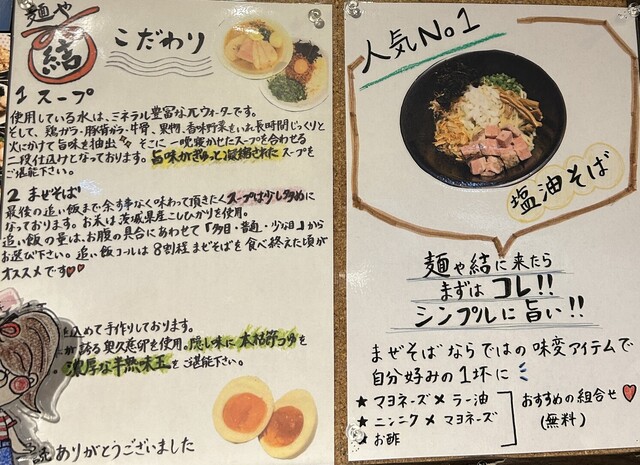 麺や
結
こだわり
1 スープ
使用している水は、ミネラル豊富なπウォーターです。
そして、鶏ガラ・豚背ガラ・牛骨、果物、香味野菜をいれ長時間じっくりと
火にかけて旨味を抽出 そこに一晩寝かせたスープを合わせる
二段仕込みとなっております。旨味がぎゅっと凝縮されたスープを
ご堪能下さい。
2 まぜそば
最後の追い飯まで余す事なく味わって頂きたくスープは少し多めに
なっております。お米は茨城県産こしひかりを使用。
追い飯の量は、お腹の具合にあわせて「多目・普通・少な目」から
お選び下さい。追い飯コールは8割程まぜそばを食べ終えた頃が
オススメです
込めて手作りしております。
が誇る奥久慈卵を使用。隠し味に本格節つゆを
濃厚な半熟味玉をご堪能下さい。
ありがとうございました
人気No1
塩油そば
麺や結に来たら
まずはコレ!!
シンプルに旨い!!
まぜそばならではの味変アイテムで
自分好みの1坏に
★マヨネーズ×ラー油
★ニンニク×マヨネーズ
★お酢
おすすめの組合せ
(無料)